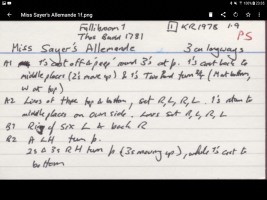 23:05
Miss Sayer's Allemande 1f.png
Fallibroom 1
Thos Budd 1781
1 KR 1978 1-9
PS
Miss Sayer's Allemande 3 cu longways
A1 1's cast off & pass round 3's at p. 1's cast back to
middle places (2's move up) & 1's Two hand turn (M at bottom,
W at top)
A2 Lines of three top & bottom, set R, L, R, L. 1's return to
middle places on own side. Lines set R, L, R, L
B1 Ring of six L & back R
B2 A LH turn p.
2s & 3s RH turn p (3s moving up), while 1's cast to
bottom